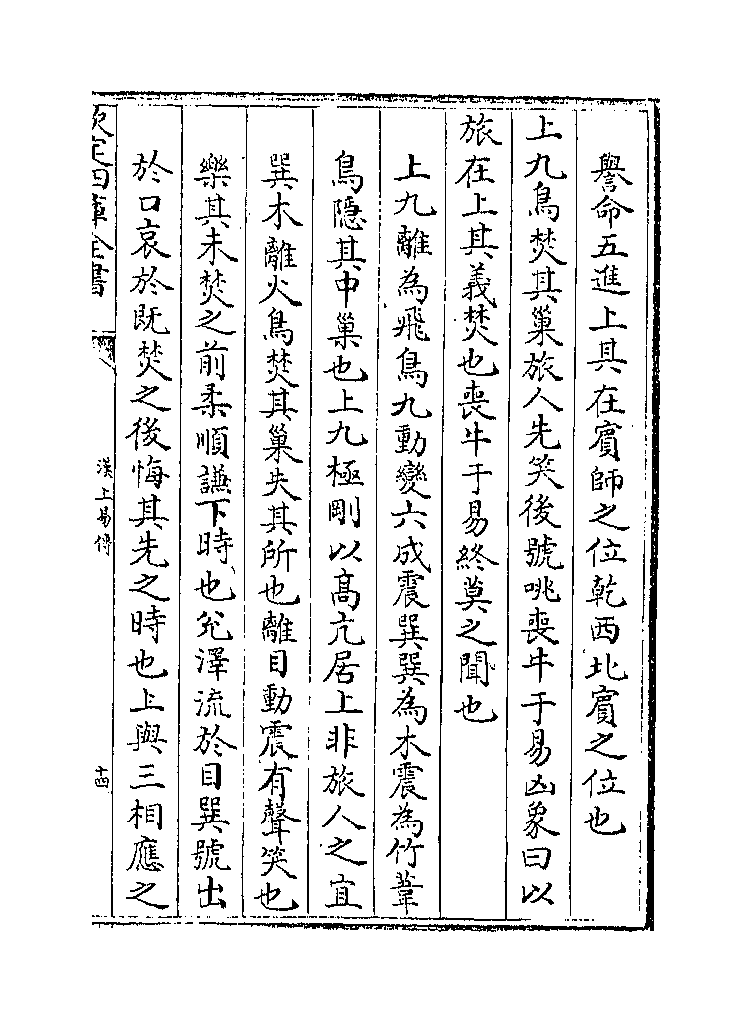 譽命五進上具在賓師之位乾西北賓之位也
上九鳥焚其巢旅人先笑後號咷喪牛于易凶象曰以
旅在上其義焚也喪牛于易終莫之聞也
上九離為飛鳥九動變六成震巽巽為木震為竹葦
鳥隱其中巢也上九極剛以髙亢居上非旅人之宜
巽木離火鳥焚其巢失其所也離目動震有聲笑也
樂其未焚之前柔順謙下時也兊澤流於目巽號出
於口哀於既焚之後悔其先之時也上與三相應之
欽定四庫全書
漢上易傳
十四